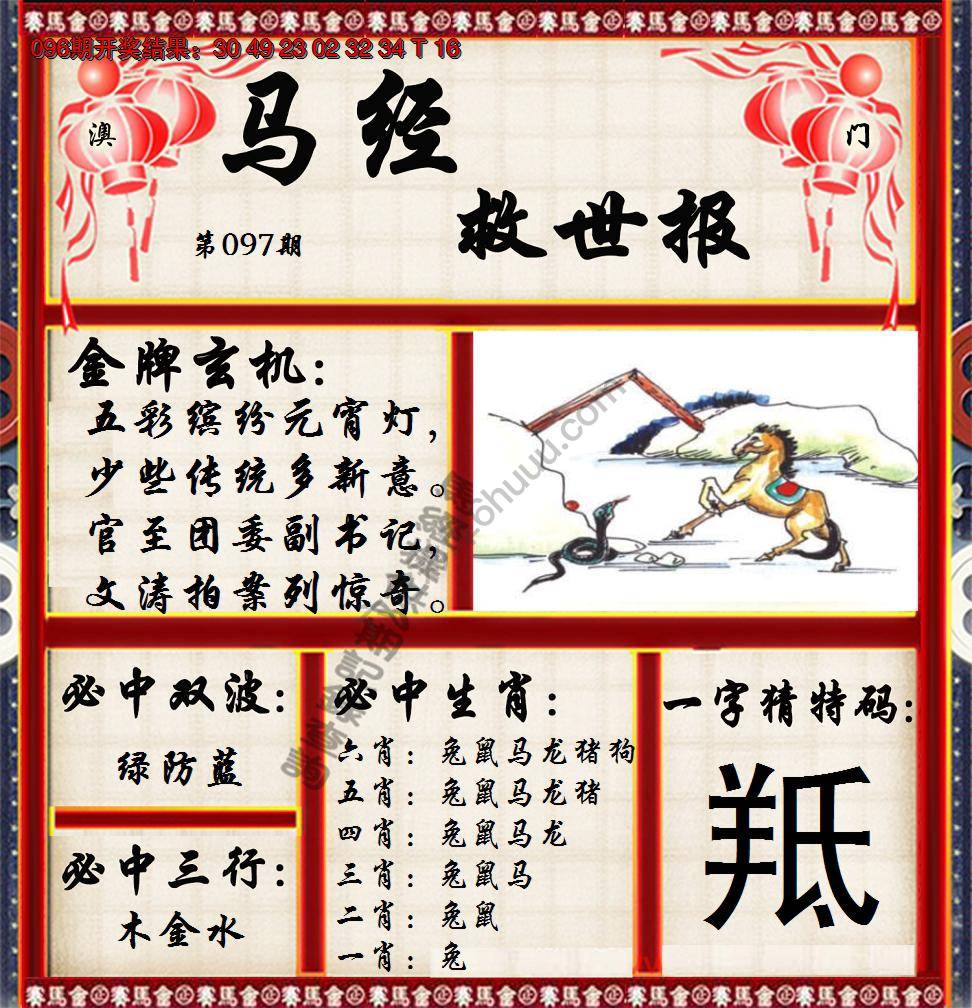 096期开奖结果：30 49 23 02 32 34 T 16
澳 门
马经
救世报
第097期
金牌玄机：
五彩缤纷元宵灯，
少些传统多新意。
官至团委副书记，
文涛拍案列惊奇。
必中双波：
绿防蓝
必中三行：
木金水
必中生肖：
六肖：兔鼠马龙猪狗
五肖：兔鼠马龙猪
四肖：兔鼠马龙
三肖：兔鼠马
二肖：兔鼠
一肖：兔
一字猜特码：
羝